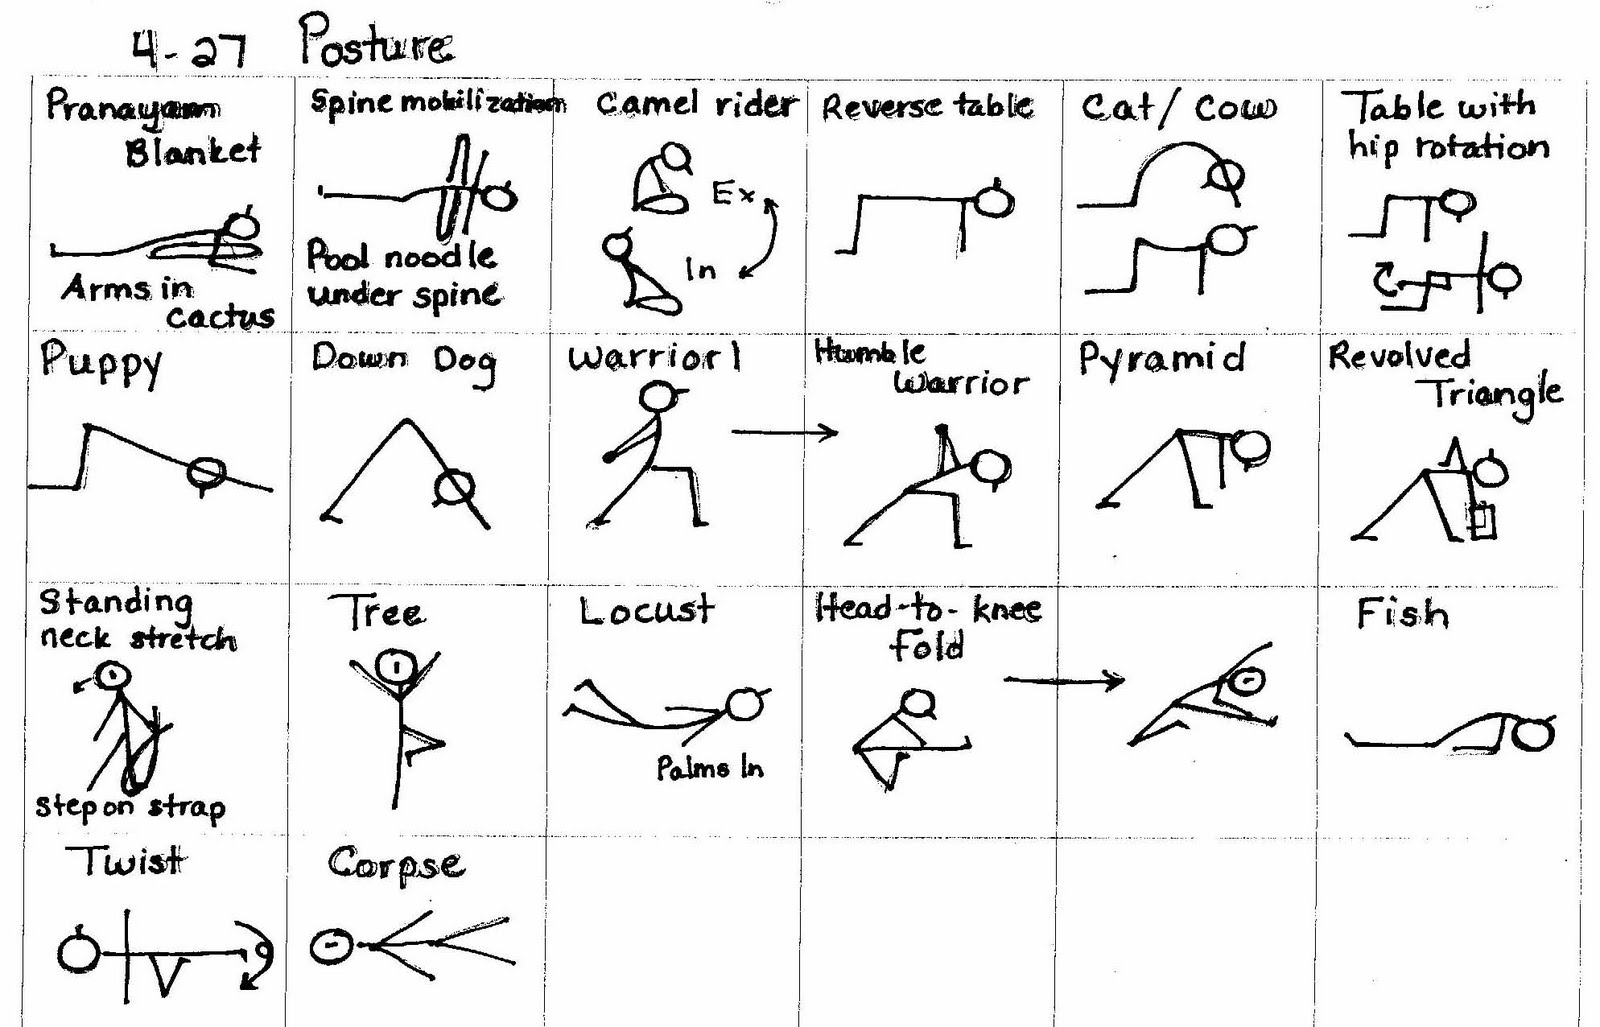 4-27 Posture
Pranayam
Blanket
Arms in
cactus
Spine mobilization
Pool noodle
under spine
Camel rider
Ex
In
Reverse table
Cat/Cow
Table with
hip rotation
Puppy
Down Dog
Warrior 1
Humble
Warrior
Pyramid
Revolved
Triangle
Standing
neck stretch
Step on strap
Tree
Locust
Palms In
Head-to-knee
fold
Fish
Twist
Corpse